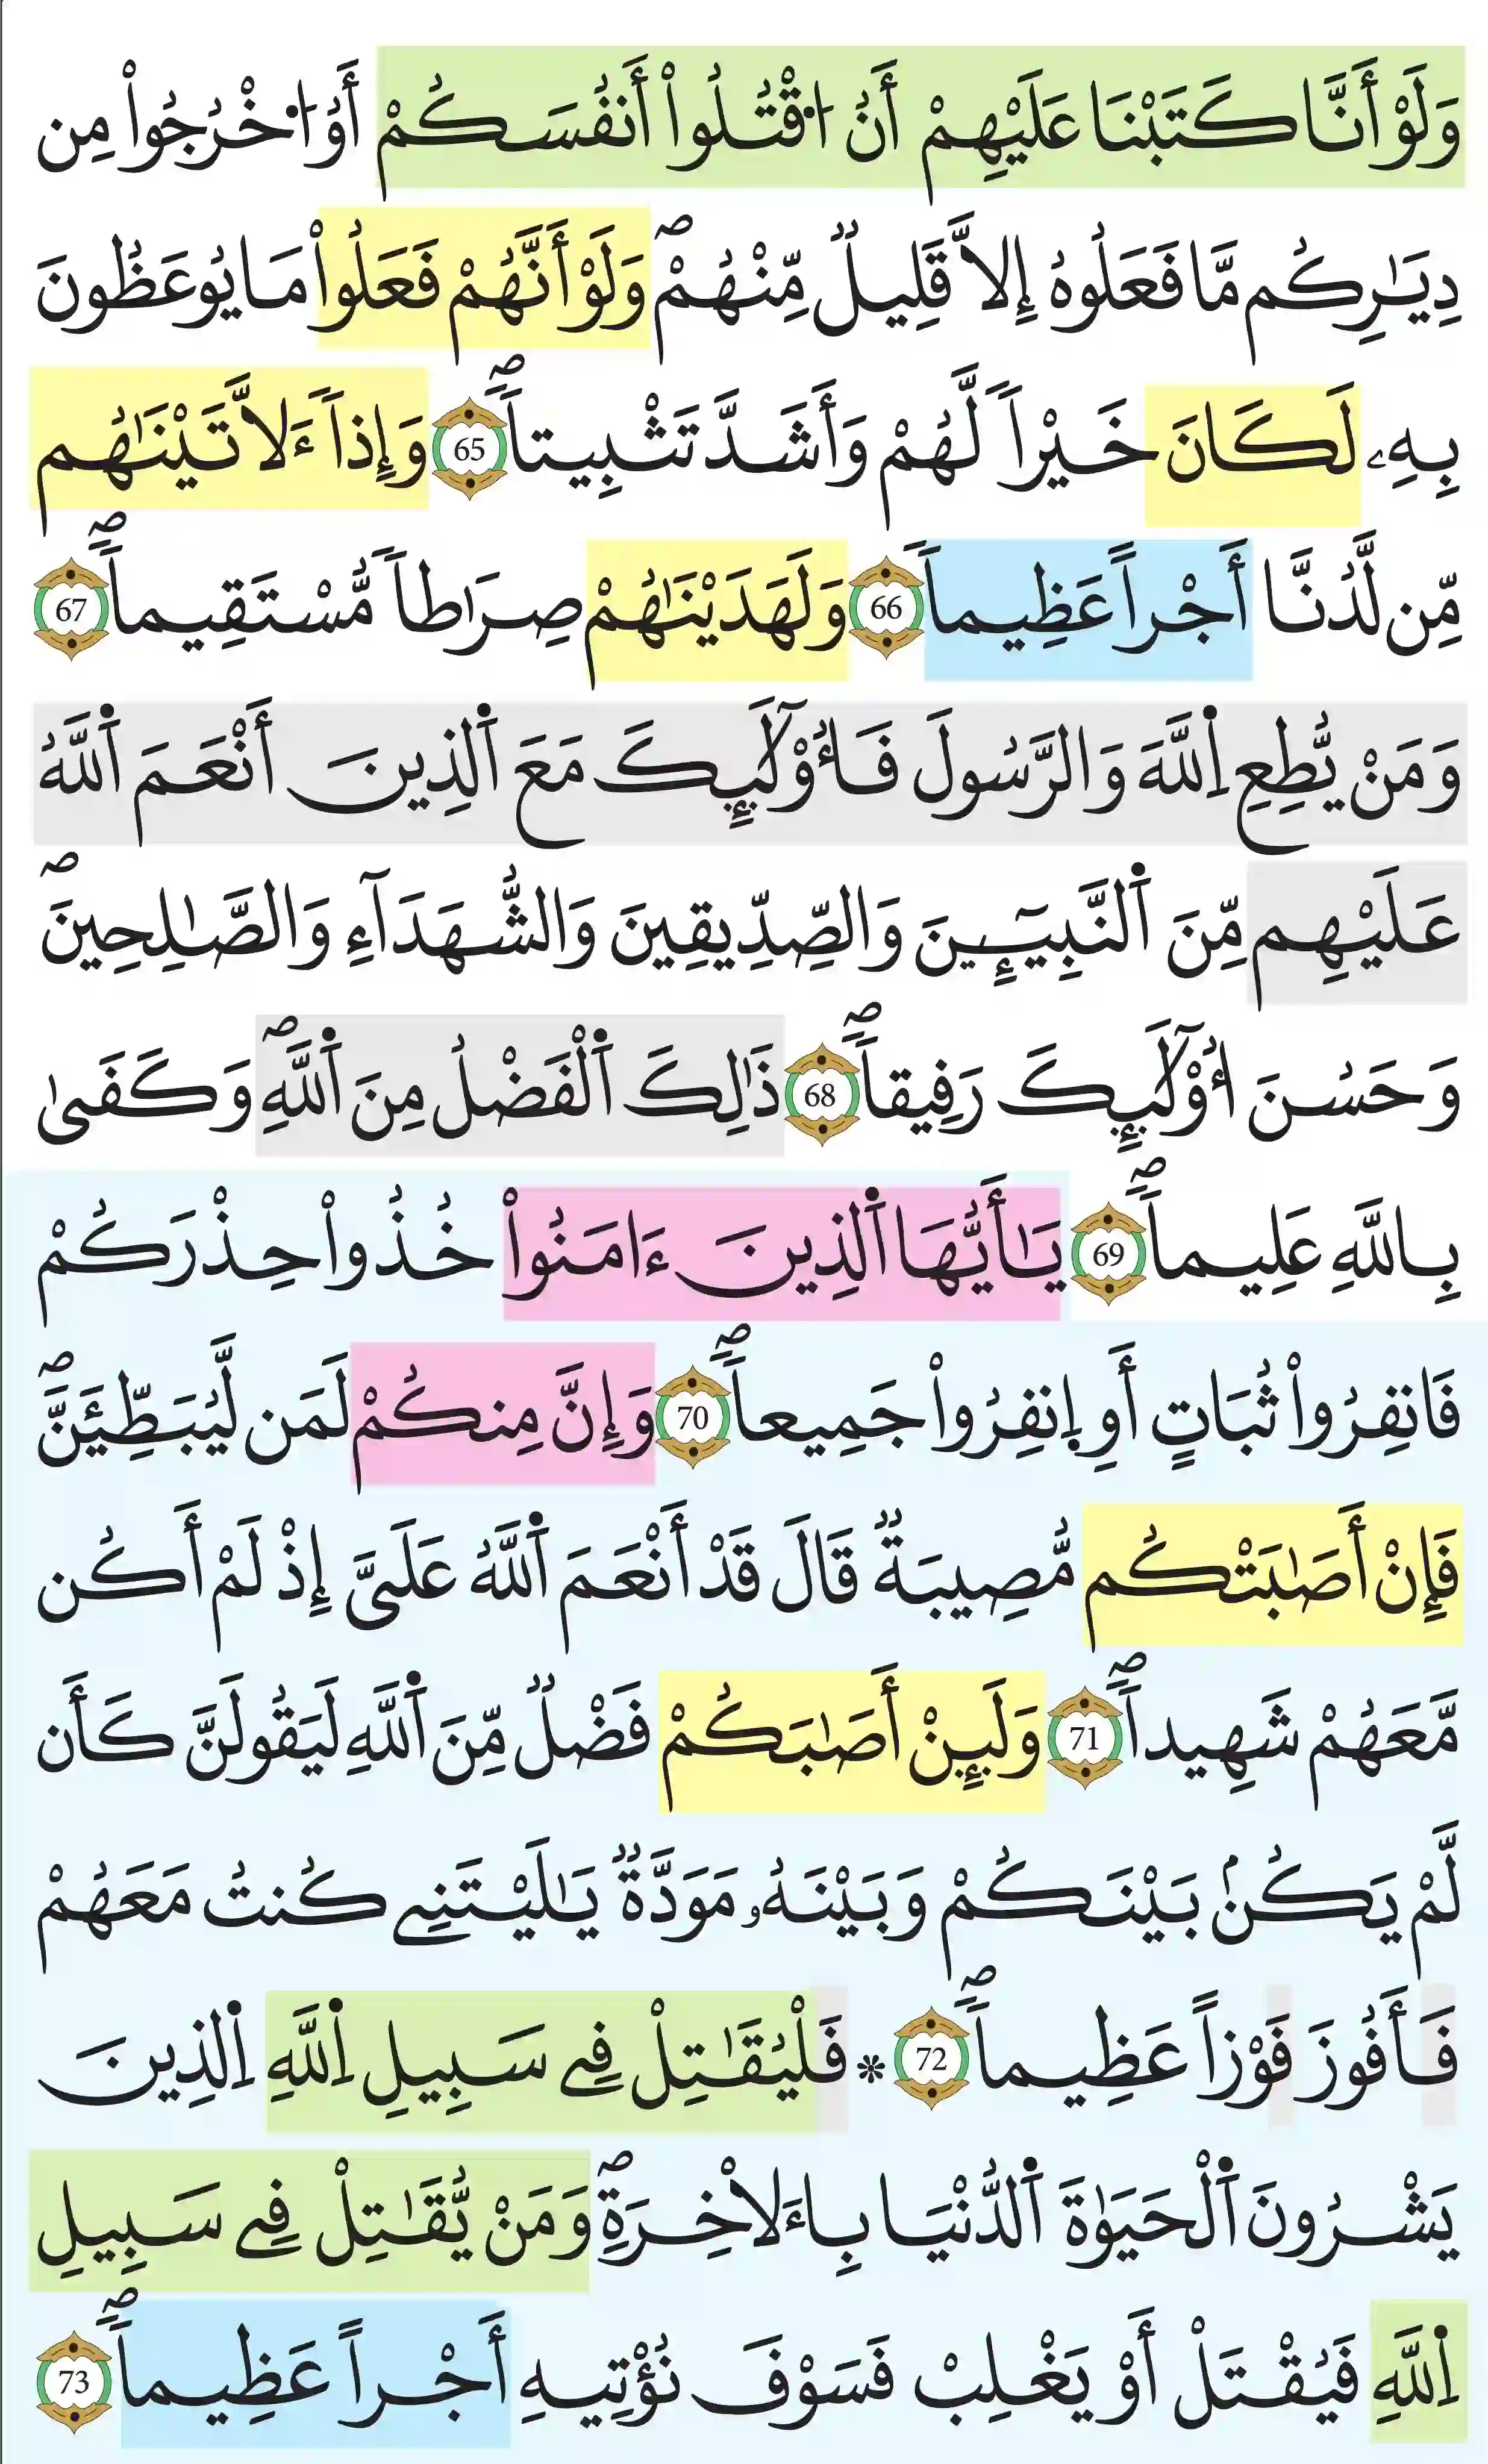 وَلَوْ أَنَّا كَتَبْنَا عَلَيْهِمْ أَنُ اُ۟قْتُلُواْ أَنفُسَكُمْ أَوُ اُ۟خْرُجُواْ مِن
دِيَٰرِكُم مَّا فَعَلُوهُ إِلاَّ قَلِيلٞ مِّنْهُمْۖ وَلَوْ أَنَّهُمْ فَعَلُواْ مَا يُوعَظُونَ
بِهِۦ لَكَانَ خَيْراٗ لَّهُمْ وَأَشَدَّ تَثْبِيتاٗۖ 65 وَإِذاٗ ءَلَاتَيْنَٰهُم
مِّن لَّدُنَّا أَجْراً عَظِيماٗ 66 وَلَهَدَيْنَٰهُمْ صِرَٰطاٗ مُّسْتَقِيماٗۖ 67
وَمَنْ يُّطِعِ اِ۬للَّهَ وَالرَّسُولَ فَأُوْلَٰٓئِكَ مَعَ اَ۬لذِينَ أَنْعَمَ اَ۬للَّهُ
عَلَيْهِم مِّنَ اَ۬لنَّبِيٓـِٕينَ وَالصِّدِّيقِينَ وَالشُّهَدَآءِ وَالصَّٰلِحِينَۖ
وَحَسُنَ أُوْلَٰٓئِكَ رَفِيقاٗۖ 68 ذَٰلِكَ اَ۬لْفَضْلُ مِنَ اَ۬للَّهِۖ وَكَفَىٰ
بِاللَّهِ عَلِيماٗۖ 69 يَٰأَيُّهَا اَ۬لذِينَ ءَامَنُواْ خُذُواْ حِذْرَكُمْ
فَانفِرُواْ ثُبَاتٍ أَوِ اِ۪نفِرُواْ جَمِيعاٗۖ 70 وَإِنَّ مِنكُمْ لَمَن لَّيُبَطِّئَنَّۖ
فَإِنْ أَصَٰبَتْكُم مُّصِيبَةٞ قَالَ قَدْ أَنْعَمَ اَ۬للَّهُ عَلَيَّ إِذْ لَمْ أَكُن
مَّعَهُمْ شَهِيداٗۖ 71 وَلَئِنْ أَصَٰبَكُمْ فَضْلٞ مِّنَ اَ۬للَّهِ لَيَقُولَنَّ كَأَن
لَّمْ يَكُنۢ بَيْنَكُمْ وَبَيْنَهُۥ مَوَدَّةٞ يَٰلَيْتَنِے كُنتُ مَعَهُمْ
فَأَفُوزَ فَوْزاً عَظِيماٗۖ 72 * فَلْيُقَٰتِلْ فِے سَبِيلِ اِ۬للَّهِ اِ۬لذِينَ
يَشْرُونَ اَ۬لْحَيَوٰةَ اَ۬لدُّنْيَا بِاءَلَاخِرَةِۖ وَمَنْ يُّقَٰتِلْ فِے سَبِيلِ
اِ۬للَّهِ فَيُقْتَلْ أَوْ يَغْلِبْ فَسَوْفَ نُؤْتِيهِ أَجْراً عَظِيماٗۖ 73